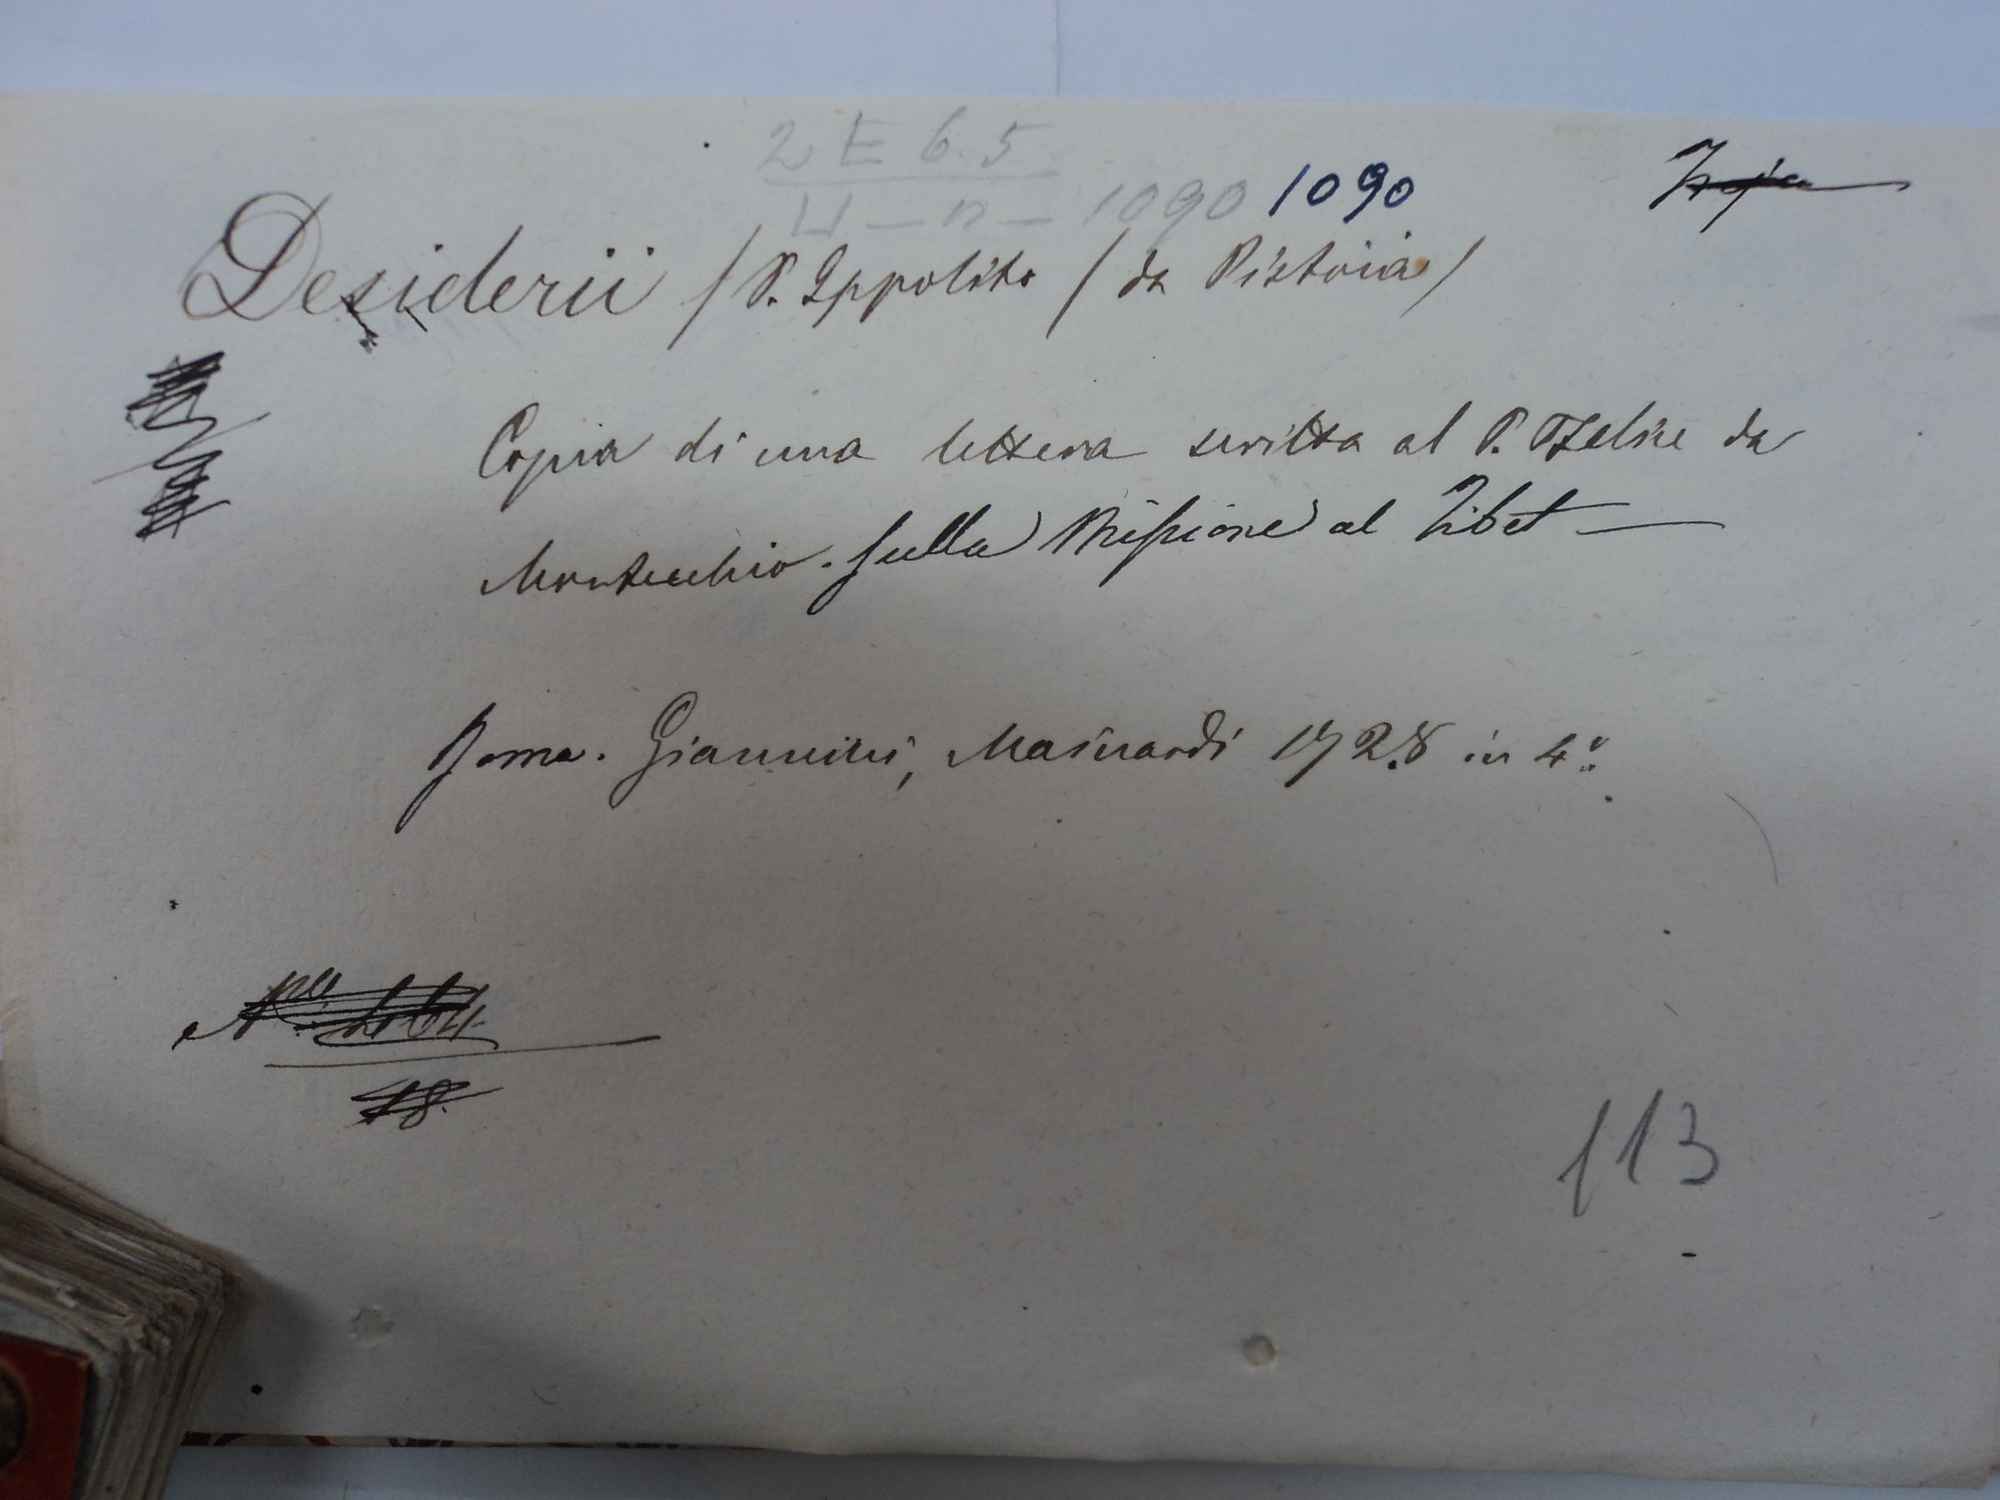 2 E 6.5
1090 1090
Desiderii / P. Ippolito / da Pistoia /
Copia di una lettera scritta al P. Felice da
Montecchio. sulla Missione al Tibet —
Roma. Giannini, Mainardi 1728 in 4°.
18.
113